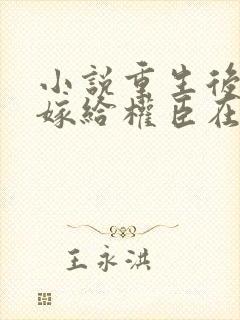 小説重生後
嫁給權臣在
王永洪